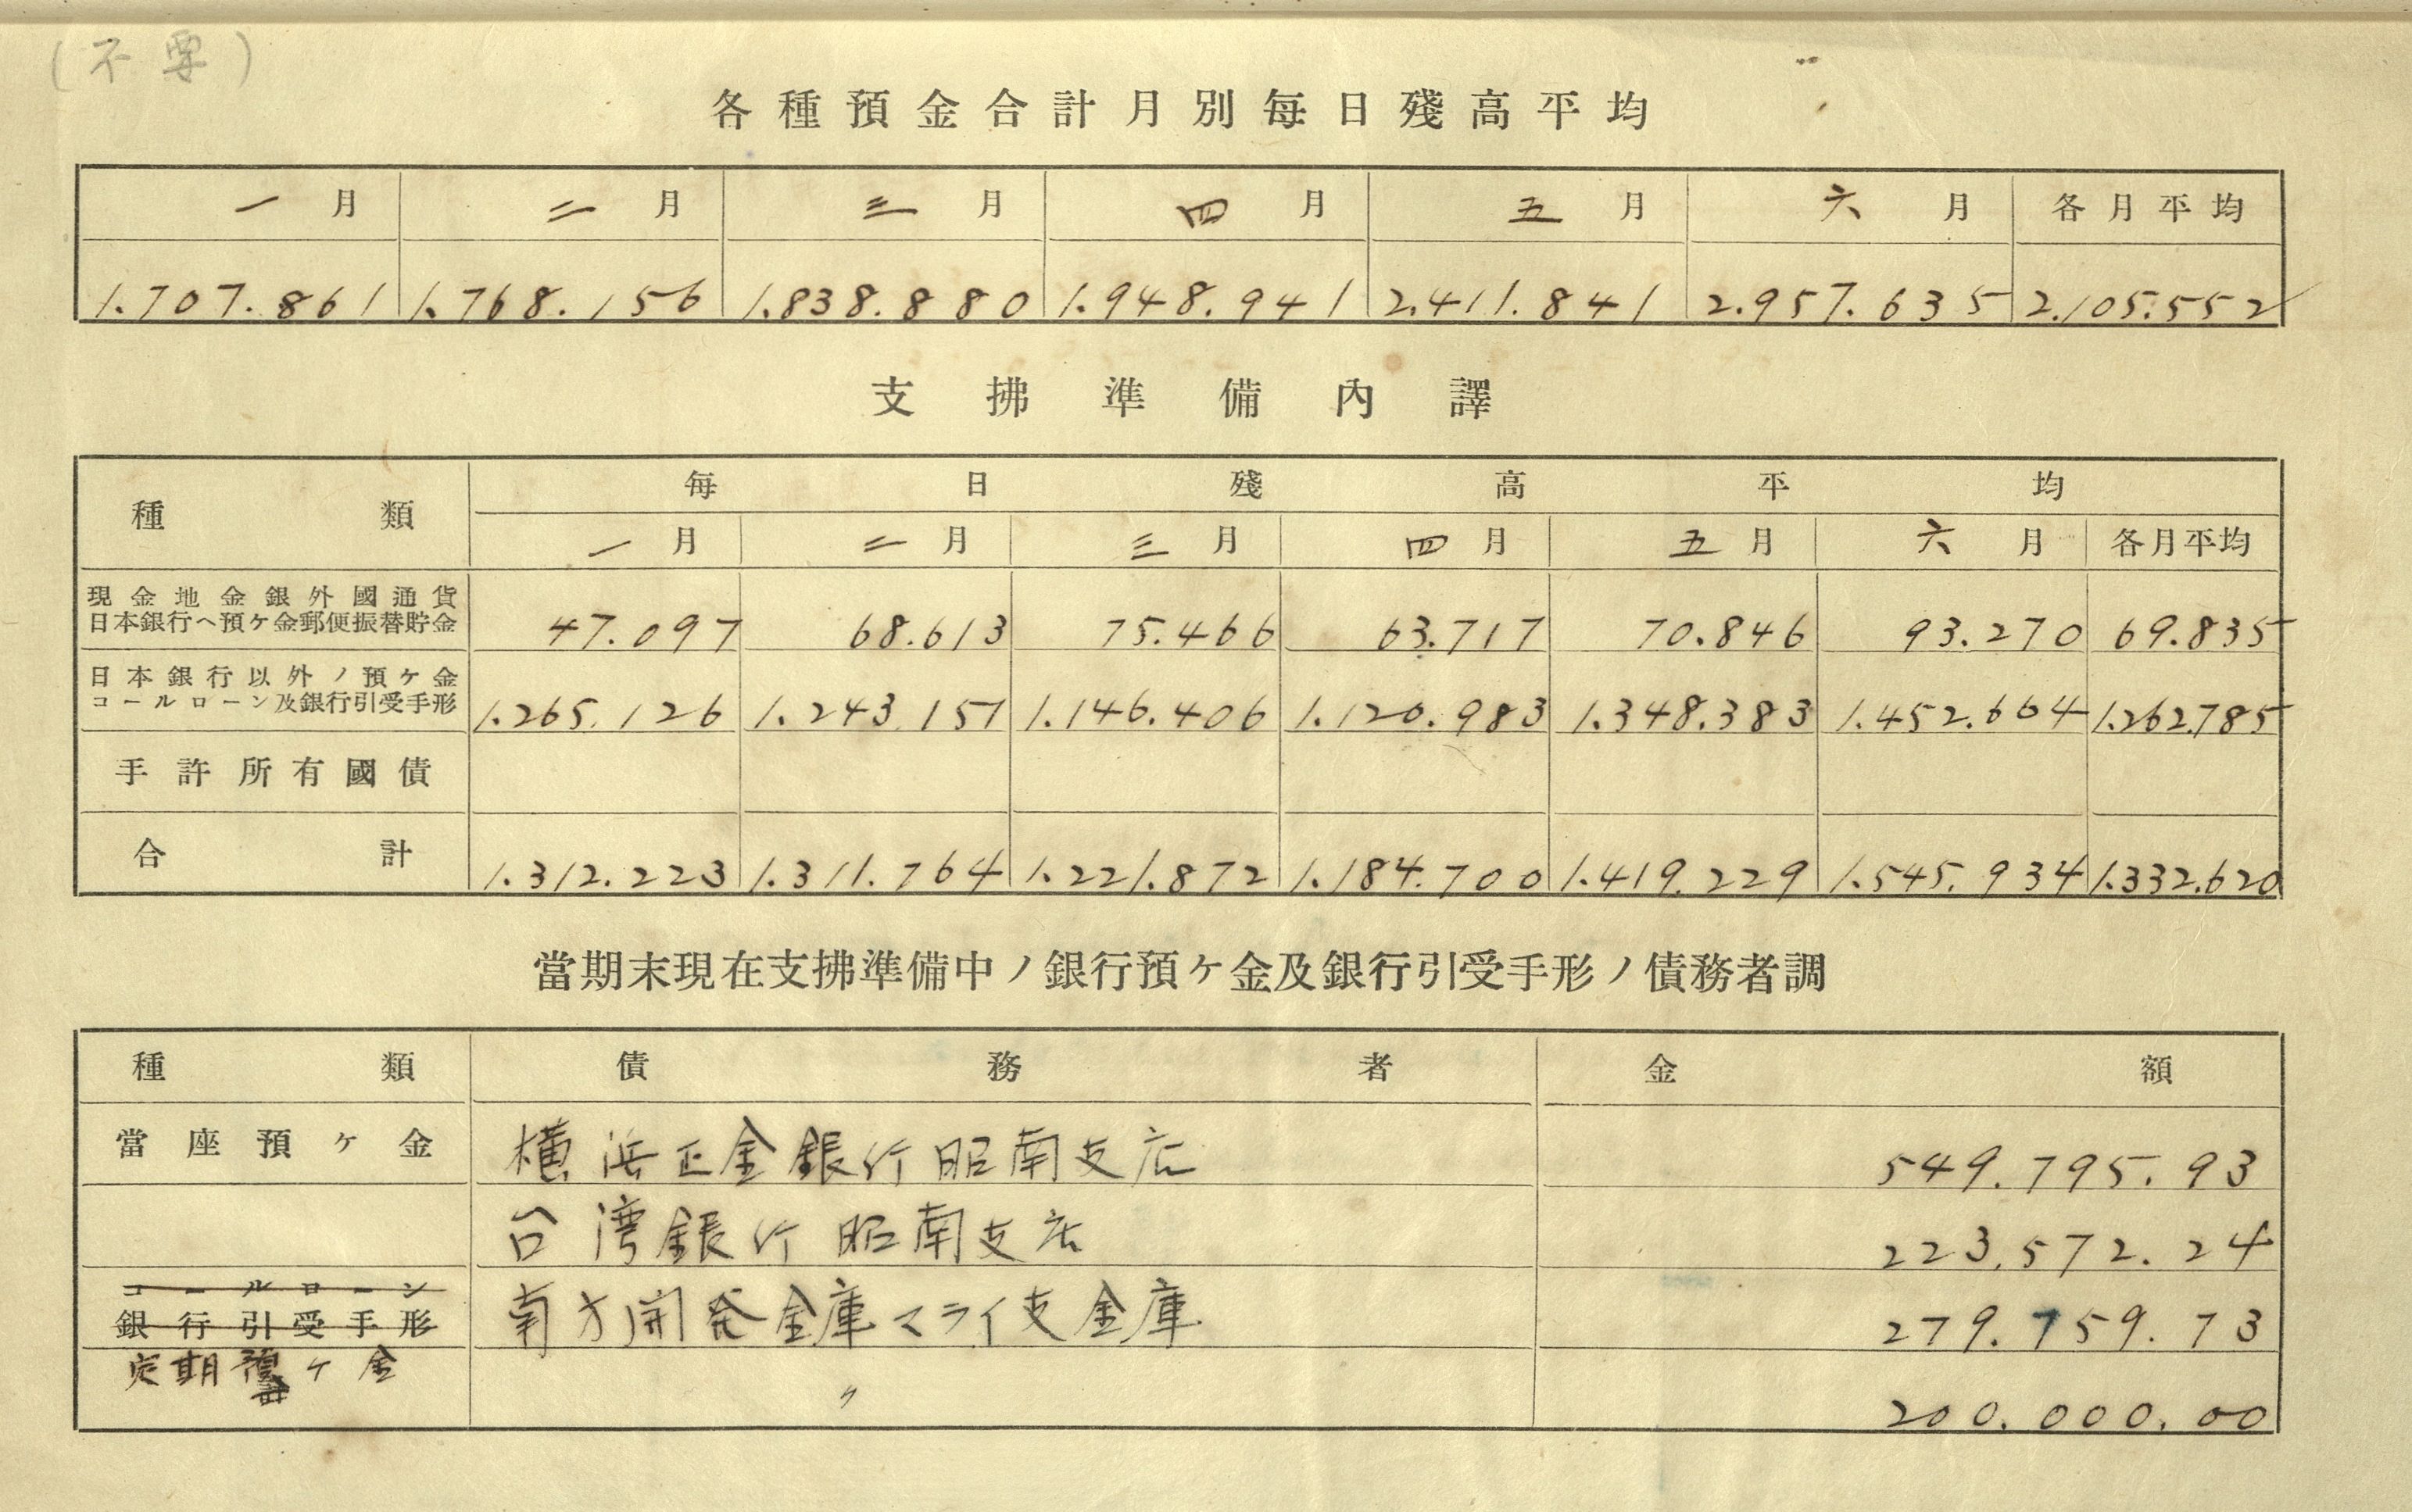 (不要)
各種預金合計月別每日殘高平均
一月 二月 三月 四月 五月 六月 各月平均
1.707.861 1.768.156 1.838.880 1.948.941 2.411.841 2.957.635 2.105.552
支拂準備內譯
種類 每日殘高平均
一月 二月 三月 四月 五月 六月 各月平均
現金地金銀外國通貨
日本銀行ヘ預ケ金郵便振替貯金 47.097 68.613 75.466 63.717 70.846 93.270 69.835
日本銀行以外ノ預ケ金
コールローン及銀行引受手形 1.265.126 1.243.151 1.146.406 1.120.983 1.348.383 1.452.664 1.262.785
手許所有國債
合計 1.312.223 1.311.764 1.221.872 1.184.700 1.419.229 1.545.934 1.332.620
當期末現在支拂準備中ノ銀行預ケ金及銀行引受手形ノ債務者調
種類 債務者 金額
當座預ケ金 橫浜正金銀行昭南支店 549.795.93
台湾銀行昭南支店 223.572.24
コールローン
銀行引受手形 南方開発金庫マライ支金庫 279.759.73
定期預ケ金 〃 200.000.00